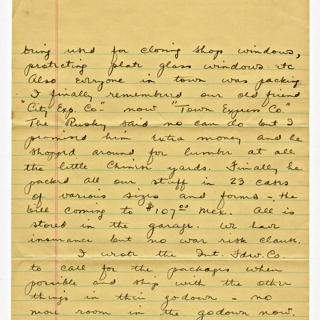 being used for closing shop windows,
protecting plate glass windows etc
Also everyone in town was packing.
I finally remembered our old friend
"City Exp. Co" now "Town Express Co"
The Rusky said no can do but I
promised him extra money and he
shopped around for lumber at all
the little Chinese yards. Finally he
packed all our stuff in 23 cases
of various sizes and forms - the
bill coming to $107.00 Mex. All is
stored in the garage. We have
insurance but no war risk clause.
I wrote the Int. Fdw. Co.
to call for the packages when
possible and ship with the other
things in their godown - no
more room in the godown now.